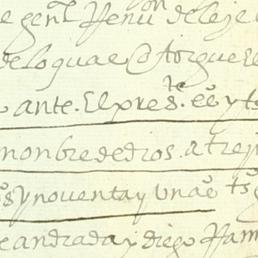 e genl Renu de leje
de lo qual otorgue e
ante. El pres.te ess.o y ts
nonbre de dios. a trej
os y noventa y un as tso
e andrada y diego Ram